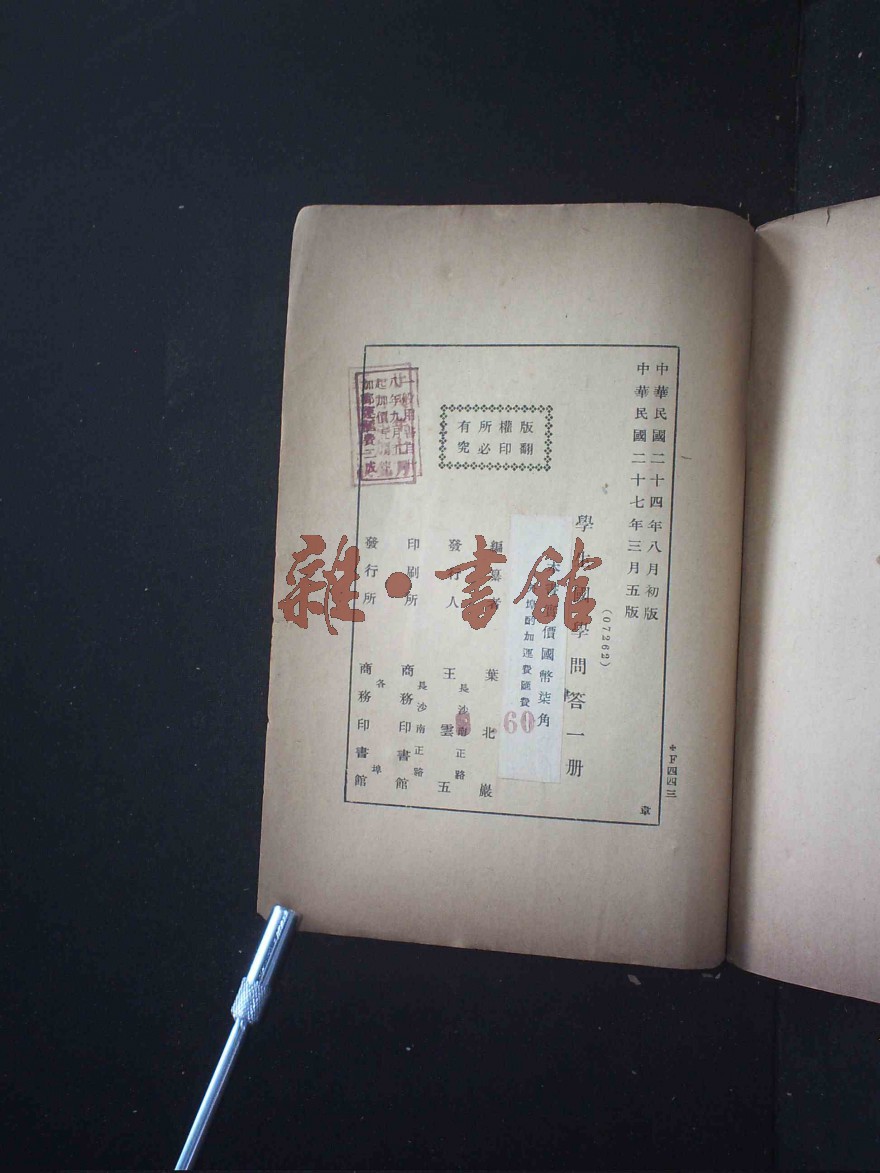 中華民國二十四年八月初版
中華民國二十七年三月五版
(07262)
學生國學問答一册
價國幣柒角
埠酌加運費匯費
60
編纂者 葉北巖
發行人 王雲五
長沙南正路
印刷所 商務印書館
長沙南正路
發行所 商務印書館
各埠
版權所有
翻印必究
加郵運匯費三成
F四四三
章
雜·書館